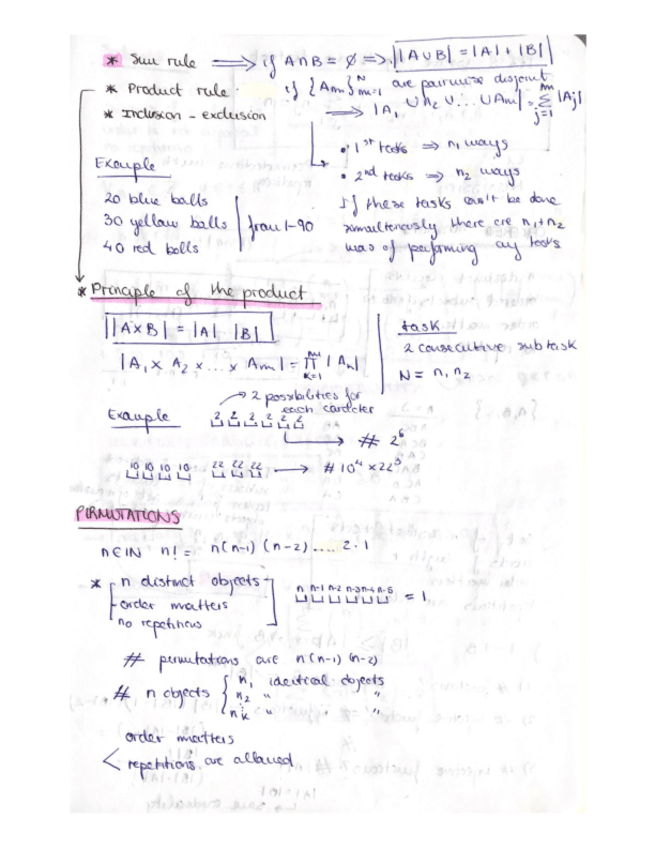 * Sum rule ⟹ if A∩B = ∅ ⟹ |A∪B| = |A| + |B|
* Product rule. if {Am}ᴺₘ₌₁ are pairwise disjoint
⟹ |A₁ ∪ A₂ ∪ ... ∪ Am| = Σᵐⱼ₌₁ |Aj|
* Inclusion - exclusion
• 1st tasks ⟹ n₁ ways
• 2nd tasks ⟹ n₂ ways
If these tasks can't be done
simultenously there are n₁+n₂
was of performing any tasks
Example
20 blue balls
30 yellow balls
40 red balls
from 1-90
* Principle of the product
|A×B| = |A| |B|
|A₁ × A₂ × ... × Am| = ∏ᵐₖ₌₁ |An|
task
2 consecutive subtask
N = n₁ n₂
→ 2 possibilities for
each carácter
Example 2 2 2 2 2 2
→ # 2⁶
10 10 10 10 22 22 22 → # 10⁴ × 22³
PERMUTATIONS
n ∈ IN n! = n(n-1)(n-2) .... 2·1
* n distinct objects
- order matters
no repetitions
n n-1 n-2 n-3 n-4 n-5 = 1
# permutations are n(n-1)(n-2)
# n objects { n₁ identical objects
n₂ " "
⋮
nₖ " "
order matters
< repetitions are allowed